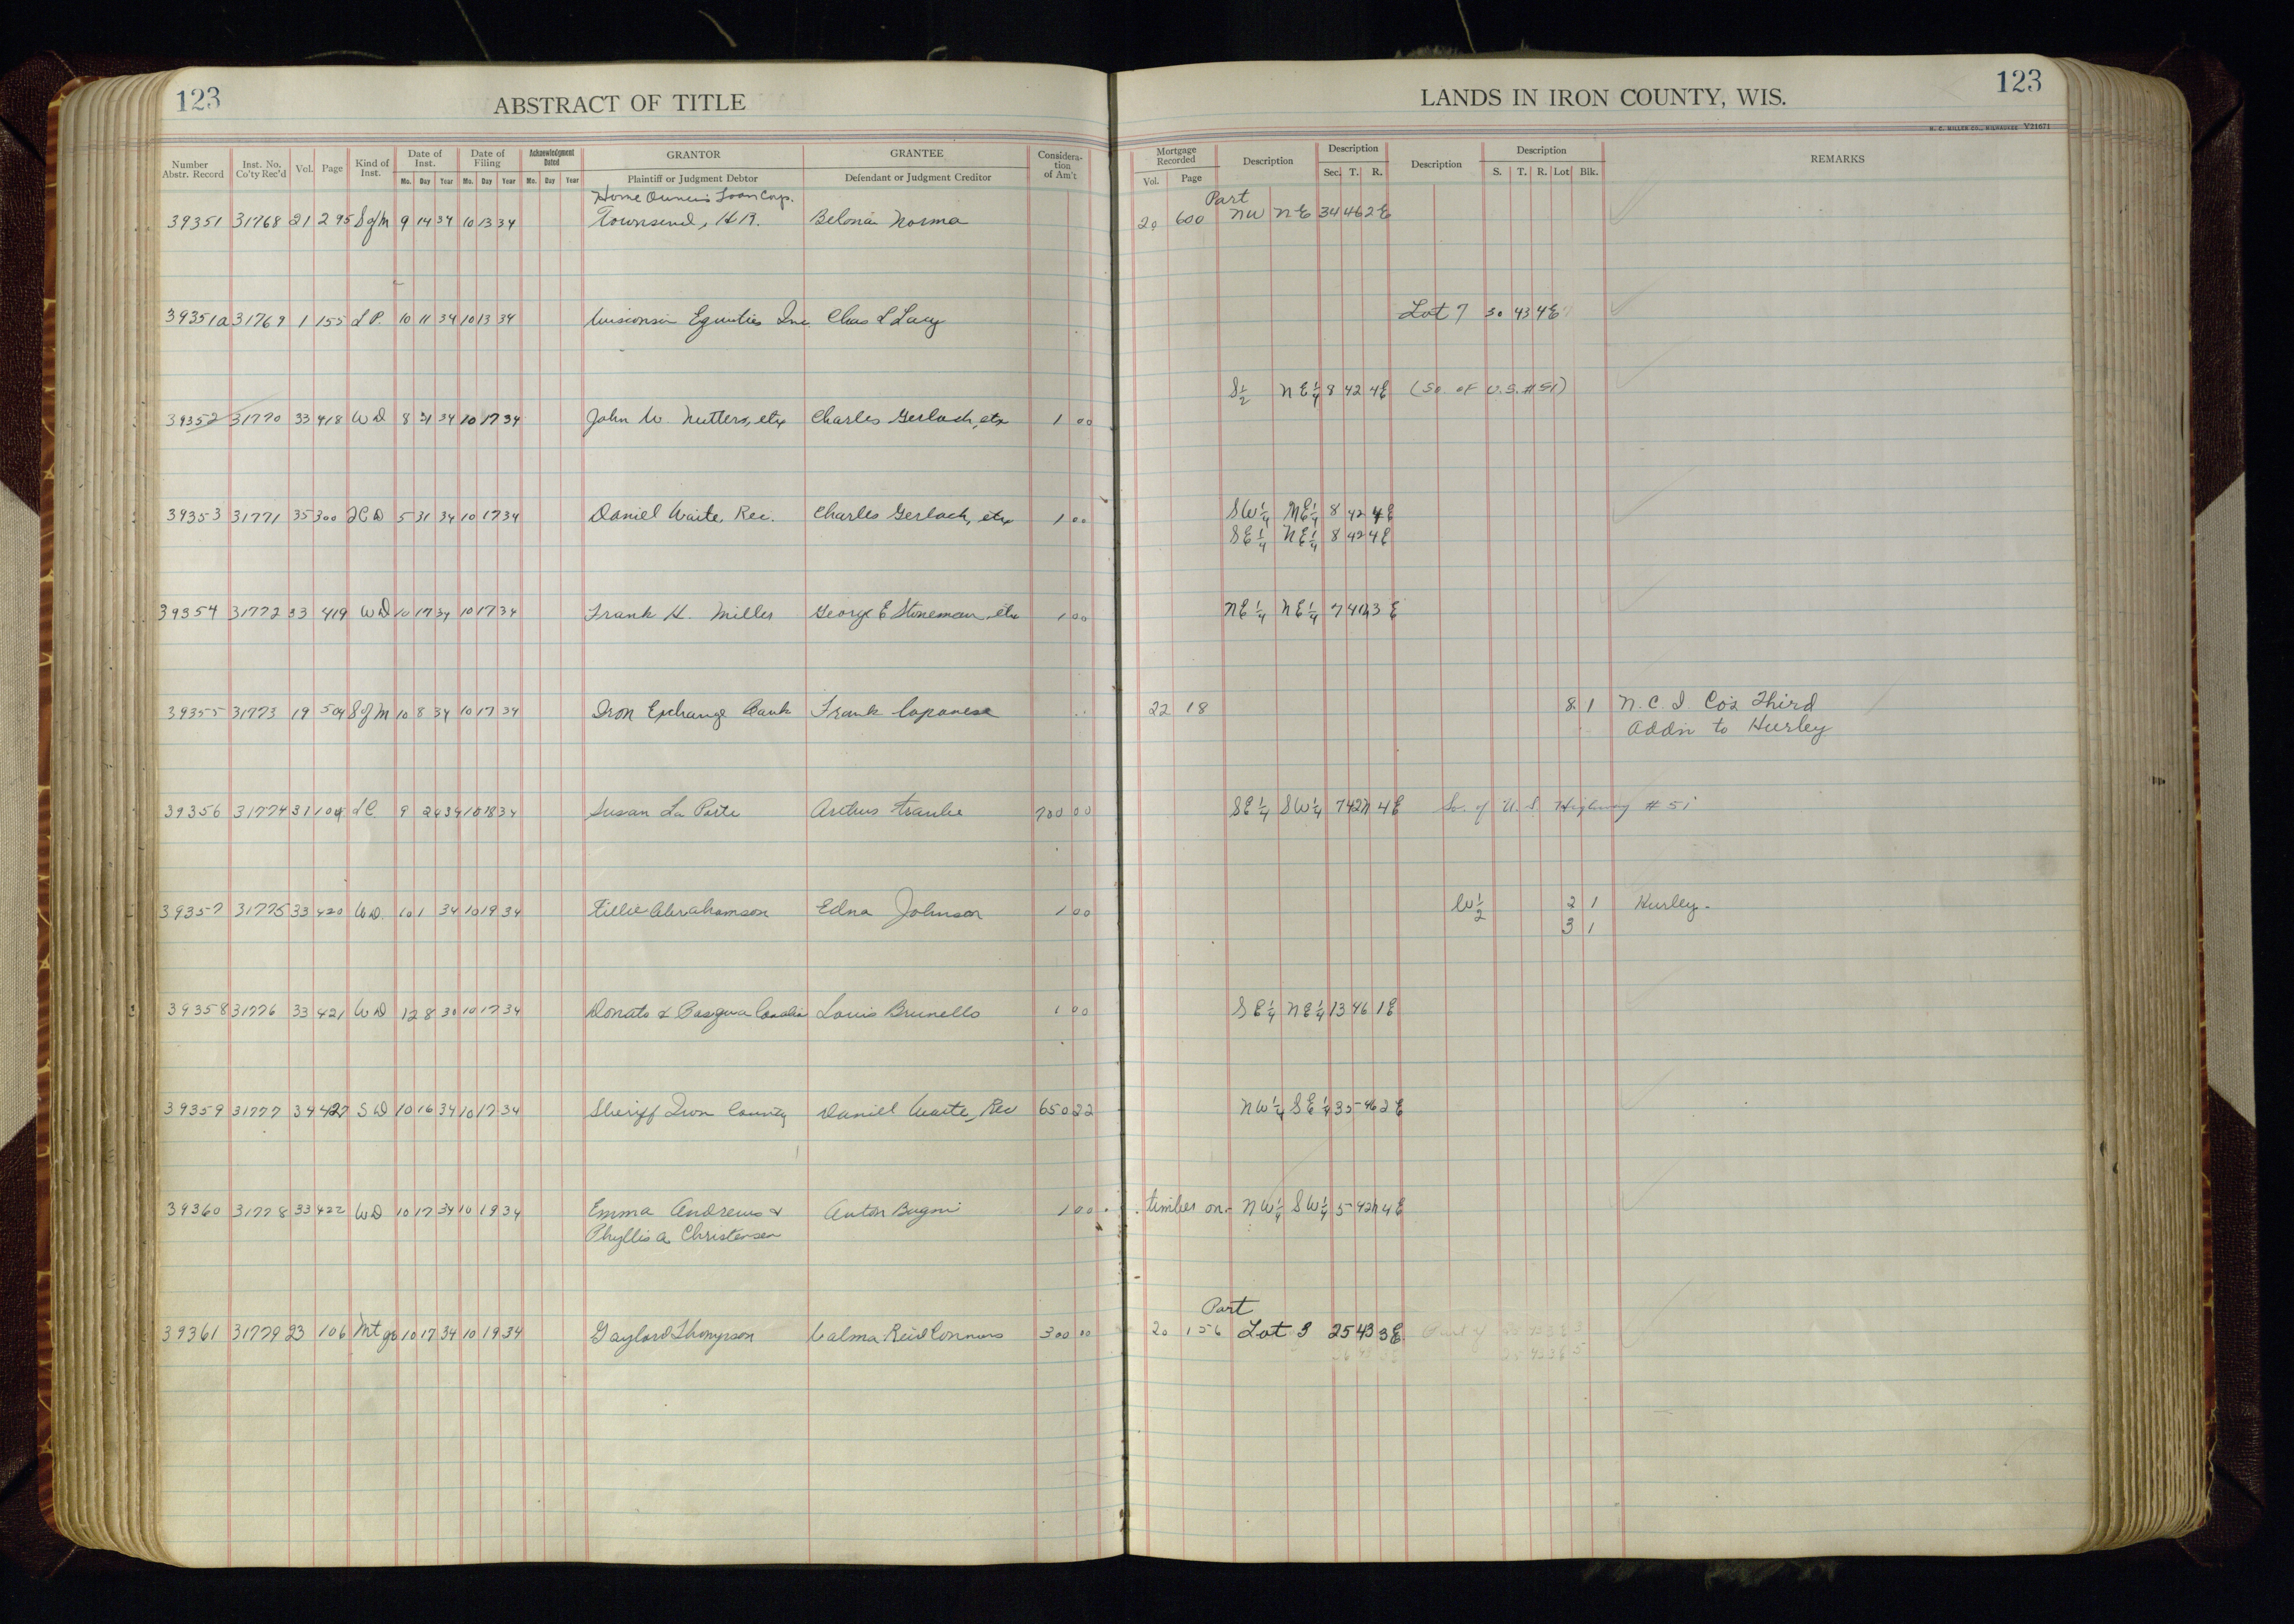 123 ABSTRACT OF TITLE
LANDS IN IRON COUNTY, WIS. 123
H. C. MILLER CO., MILWAUKEE Y21671
Number Abstr. Record Inst. No. Co'ty Rec'd Vol. Page Kind of Inst. Date of Inst. Mo. Day Year Date of Filing Mo. Day Year Acknowledgment Dated Mo. Day Year GRANTOR Plaintiff or Judgment Debtor GRANTEE Defendant or Judgment Creditor Consideration of Am't
Mortgage Recorded Vol. Page Description Description Sec. T. R. Description Description S. T. R. Lot Blk. REMARKS
Home Owners Loan Corp. Part
39351 31768 21 295 S of M 9 14 34 10 13 34 Townsend, H.A. Norma 20 600 NW NE 34 46 2E
39351a 31769 1 155 L P. 10 11 34 10 13 34 Wisconsin Equities Inc. Chas L Lacy Lot 7 30 43 4E
S½ NE¼ 8 42 4E (So. of U.S. #51)
39352 31770 33 418 WD 8 21 34 10 17 34 John W. etux Charles Gerlach, etux 1 00
39353 31771 35 300 QCD 5 31 34 10 17 34 Daniel Waite, Rec. Charles Gerlach, etux 1 00 SW¼ NE¼ 8 42 4E
SE¼ NE¼ 8 42 4E
39354 31772 33 419 WD 10 17 34 10 17 34 Frank H. Miller George E Stoneman, etux 1 00 NE¼ NE¼ 7 3E
39355 31773 19 504 S of M 10 8 34 10 17 34 Iron Exchange Bank Frank 22 18 8 1 N.C.I Co's Third
Addn to Hurley
39356 31774 31 104 LC 9 34 10 18 34 Susan La Porte 700 00 SE¼ SW¼ 7 42N 4E So. of U.S. Highway #51
39357 31775 33 420 WD. 10 1 34 10 19 34 Tillie Abrahamson Edna Johnson 1 00 W½ 2 1 Hurley.
3 1
39358 31776 33 421 WD 12 8 30 10 17 34 Donato & Louis Brunello 1 00 SE¼ NE¼ 13 46 1E
39359 31777 34 427 SD 10 16 34 10 17 34 Sheriff Iron County Daniel Waite, Rec 650 22 NW¼ SE¼ 35 46 2E
39360 31778 33 422 WD 10 17 34 10 19 34 Emma Andrews & Anton Bugni 1 00 timber on NW¼ SW¼ 5 42N 4E
Phyllis A. Christensen
Part
39361 31779 23 106 Mtge 10 17 34 10 19 34 Gaylord Thompson Reid Connors 300 00 20 156 Lot 3 25 43 3E. Part of